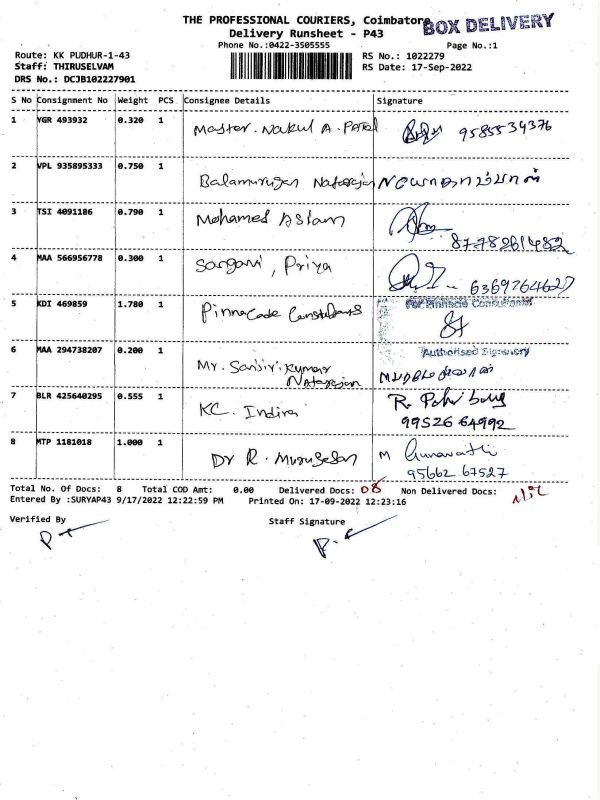 THE PROFESSIONAL COURIERS, Coimbatore
BOX DELIVERY
Delivery Runsheet - P43
Phone No.:0422-3505555
Page No.:1
Route: KK PUDHUR-1-43
RS No.: 1022279
Staff: THIRUSELVAM
RS Date: 17-Sep-2022
DRS No.: DCJB102227901
S No Consignment No Weight PCS Consignee Details Signature
1 VGR 493932 0.320 1 Master. Nakul A. Patel 9585534376
2 VPL 935895333 0.750 1 Balamurugan Natarajan
3 TSI 4091186 0.790 1 Mohamed Aslam 8778261482
4 MAA 566956778 0.300 1 Sargani, Priya 6369764627
5 KDI 469859 1.780 1 Pinnacade Consultants For Pinnacle Consultants
Authorised Signatory
6 MAA 294738207 0.200 1 Mr. Sanjivi Kumar
Natarajan
7 BLR 425640295 0.555 1 KC. Indira R.
99526 64992
8 MTP 1181018 1.000 1 Dr R. Murugesan M Gunavathi
95662 67527
Total No. Of Docs: 8 Total COD Amt: 0.00 Delivered Docs: 08 Non Delivered Docs:
Entered By :SURYAP43 9/17/2022 12:22:59 PM Printed On: 17-09-2022 12:23:16
Verified By Staff Signature